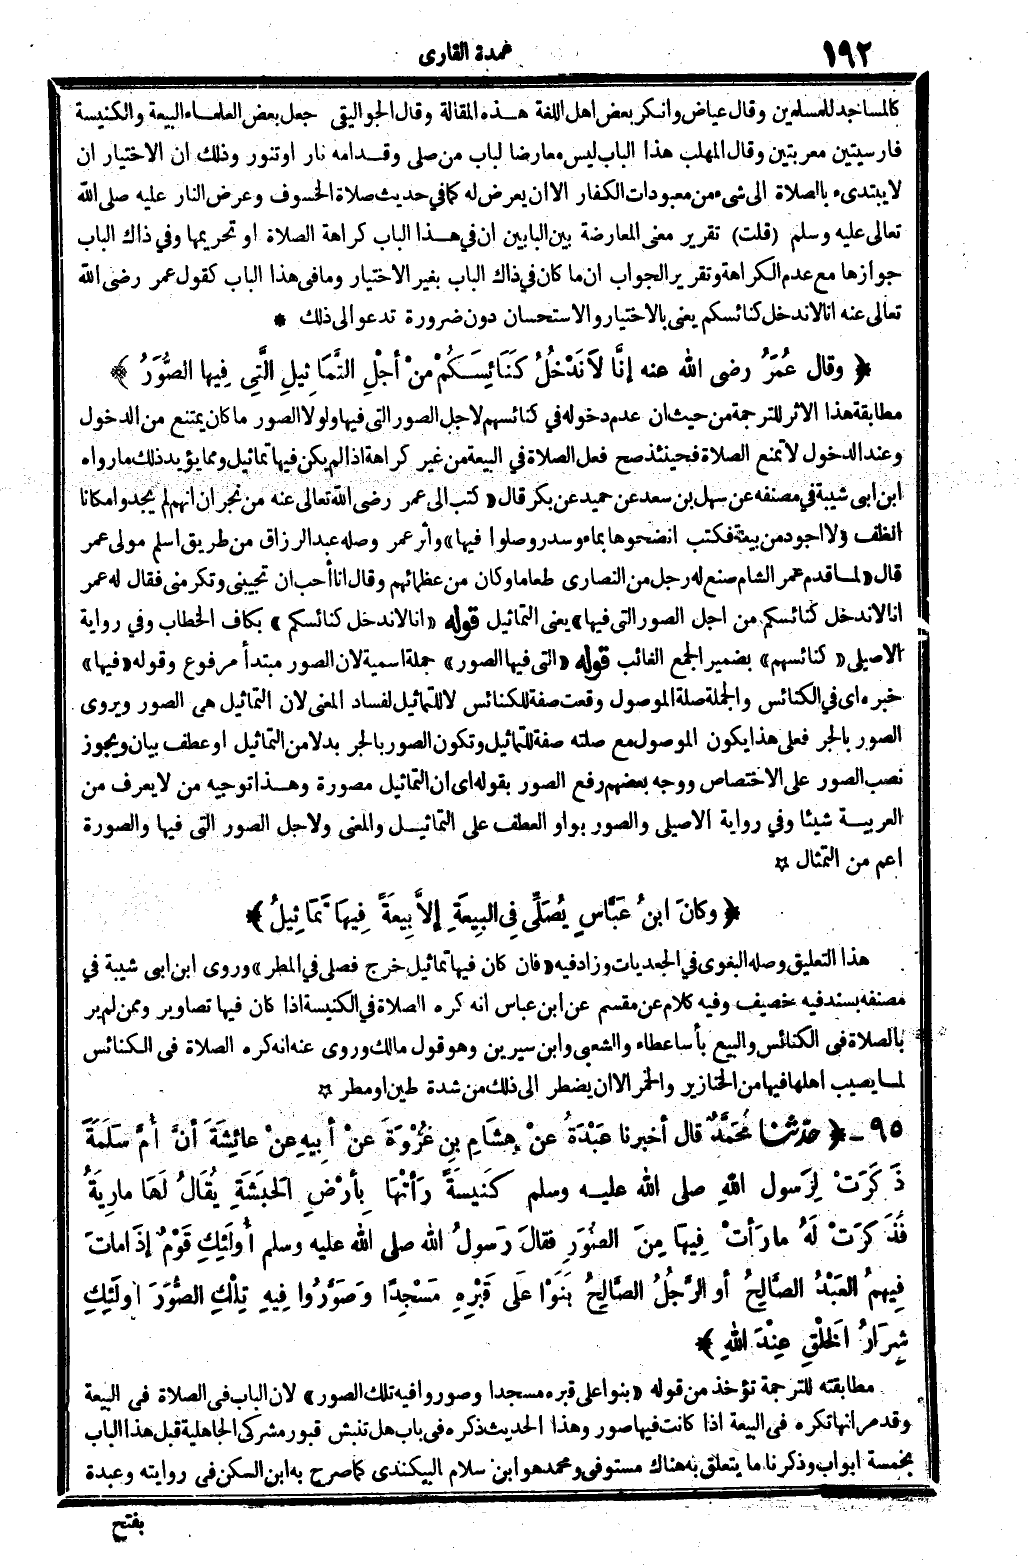 ١٩٢
عمدة القارى
كالمساجد للمسلمين وقال عياض وانكر بعض اهل اللغة هذه المقالة وقال الجواليقى جعل بعض العلماء البيعة والكنيسة
فارسيتين معربتين وقال المهلب هذا الباب ليس معارضا لباب من صلى وقدامه نار او تنور وذلك ان الاختيار ان
لا يبتدىء بالصلاة الى شىء من معبودات الكفار الا ان يعرض له كما في حديث صلاة الخسوف وعرض النار عليه صلى الله
تعالى عليه وسلم (قلت) تقرير معنى المعارضة بين البابين ان في هذا الباب كراهة الصلاة او تحريمها وفي ذاك الباب
جوازها مع عدم الكراهة وتقرير الجواب ان ما كان في ذاك الباب بغير الاختيار وما فى هذا الباب كقول عمر رضى الله
تعالى عنه انا لا ندخل كنائسكم يعنى بالاختيار والاستحسان دون ضرورة تدعو الى ذلك *
﴿ وقال عُمَرُ رضى الله عنه إنَّا لاَ نَدْخُلُ كَنَائِسَكُمْ مِنْ أجْلِ التَّمَاثِيلِ الَّتِي فِيها الصُّوَرُ ﴾
مطابقة هذا الاثر للترجمة من حيث ان عدم دخوله في كنائسهم لاجل الصور التى فيها ولولا الصور ما كان يمتنع من الدخول
وعند الدخول لا تمنع الصلاة فحينئذ صح فعل الصلاة في البيعة من غير كراهة اذا لم يكن فيها تماثيل ومما يؤيد ذلك ما رواه
ابن ابى شيبة في مصنفه عن سهل بن سعد عن حميد عن بكر قال «كتب الى عمر رضى الله تعالى عنه من نجران انهم لم يجدوا مكانا
انظف ولا اجود من بيعة فكتب انضحوها بماء وسدر وصلوا فيها» وأثر عمر وصله عبد الرزاق من طريق اسلم مولى عمر
قال «لما قدم عمر الشام صنع له رجل من النصارى طعاما وكان من عظمائهم وقال انا أحب ان تجيبنى وتكرمنى فقال له عمر
انا لا ندخل كنائسكم من اجل الصور التى فيها» يعنى التماثيل قوله «انا لا ندخل كنائسكم» بكاف الخطاب وفي رواية
الاصيلى «كنائسهم» بضمير الجمع الغائب قوله «التى فيها الصور» جملة اسمية لان الصور مبتدأ مرفوع وقوله «فيها»
خبره اى في الكنائس والجملة صلة الموصول وقعت صفة للكنائس لا للتماثيل لفساد المعنى لان التماثيل هى الصور ويروى
الصور بالجر فعلى هذا يكون الموصول مع صلته صفة للتماثيل وتكون الصور بالجر بدلا من التماثيل او عطف بيان ويجوز
نصب الصور على الاختصاص ووجه بعضهم رفع الصور بقوله اى ان التماثيل مصورة وهذا توجيه من لا يعرف من
العربية شيئا وفي رواية الاصيلى والصور بواو العطف على التماثيل والمعنى ولاجل الصور التى فيها والصورة
اعم من التمثال *
﴿ وكانَ ابنُ عَبَّاسٍ يُصَلِّى فِى البِيعَةِ إلاَّ بِيعَةً فِيهَا تَمَاثِيلُ ﴾
هذا التعليق وصله البغوى في الجعديات وزاد فيه «فان كان فيها تماثيل خرج فصلى في المطر» وروى ابن ابى شيبة في
مصنفه بسند فيه خصيف وفيه كلام عن مقسم عن ابن عباس انه كره الصلاة في الكنيسة اذا كان فيها تصاوير وممن لم ير
بالصلاة فى الكنائس والبيع بأسا عطاء والشعبى وابن سيرين وهو قول مالك وروى عنه انه كره الصلاة فى الكنائس
لما يصيب اهلها فيها من الخنازير والخمر الا ان يضطر الى ذلك من شدة طين او مطر *
٩٥ - ﴿ حدثنا مُحَمَّدٌ قال أخبرنا عَبْدَةُ عنْ هِشَامِ بنِ عُرْوَةَ عَنْ أبِيهِ عنْ عائِشَةَ أنَّ أُمَّ سَلَمَةَ
ذَكَرَتْ لِرَسولِ اللهِ صلى الله عليه وسلم كَنِيسَةً رَأتْهَا بِأرْضِ الحَبَشَةِ يُقَالُ لَهَا مارِيَةُ
فَذَكَرَتْ لَهُ ما رَأتْ فِيهَا مِنَ الصُّوَرِ فقالَ رَسولُ الله صلى الله عليه وسلم أُولَئِكِ قَوْمٌ إذَا ماتَ
فِيهِمُ العَبْدُ الصَّالِحُ أوِ الرَّجُلُ الصَّالِحُ بَنَوْا عَلَى قَبْرِهِ مَسْجِدًا وَصَوَّرُوا فِيهِ تِلْكِ الصُّوَرَ أولَئِكِ
شِرَارُ الخَلْقِ عِنْدَ اللهِ ﴾
مطابقته للترجمة تؤخذ من قوله «بنوا على قبره مسجدا وصوروا فيه تلك الصور» لان الباب فى الصلاة فى البيعة
وقد مر انها تكره فى البيعة اذا كانت فيها صور وهذا الحديث ذكره فى باب هل تنبش قبور مشركى الجاهلية قبل هذا الباب
بخمسة ابواب وذكرنا ما يتعلق به هناك مستوفى ومحمد هو ابن سلام البيكندى كما صرح به ابن السكن فى روايته وعبدة
بفتح